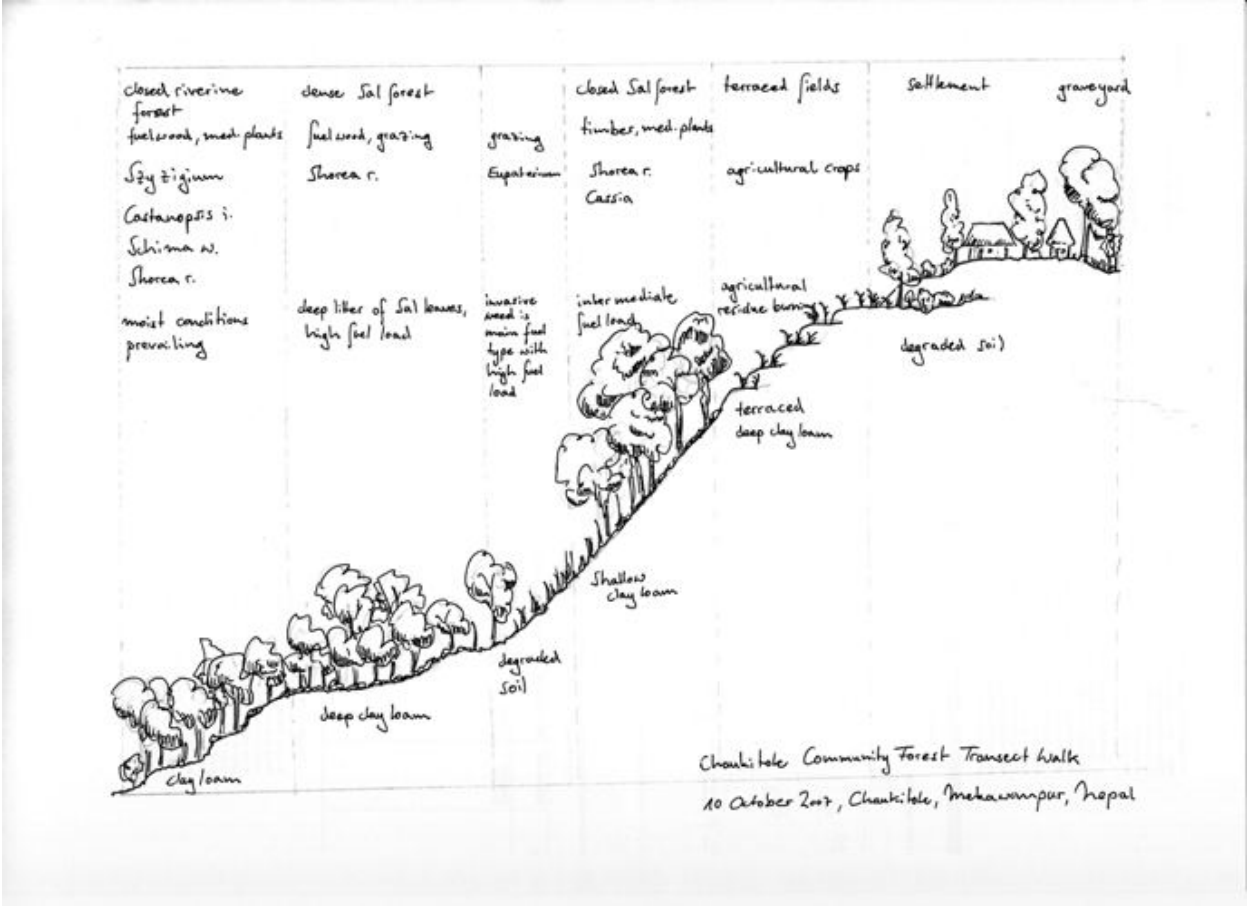 closed riverine
forest
fuelwood, med. plants
Szyzigium
Castanopsis i.
Schima w.
Shorea r.
moist conditions
prevailing
clay loam
dense Sal forest
fuelwood, grazing
Shorea r.
deep litter of Sal leaves,
high fuel load
deep clay loam
grazing
Eupatorium
invasive
weed is
main fuel
type with
high fuel
load
degraded
soil
closed Sal forest
timber, med. plants
Shorea r.
Cassia
intermediate
fuel load
shallow
clay loam
terraced fields
agricultural crops
agricultural
residue burning
terraced
deep clay loam
settlement
degraded soil
graveyard
Chaukitole Community Forest Transect Walk
10 October 2007, Chaukitole, Makawanpur, Nepal